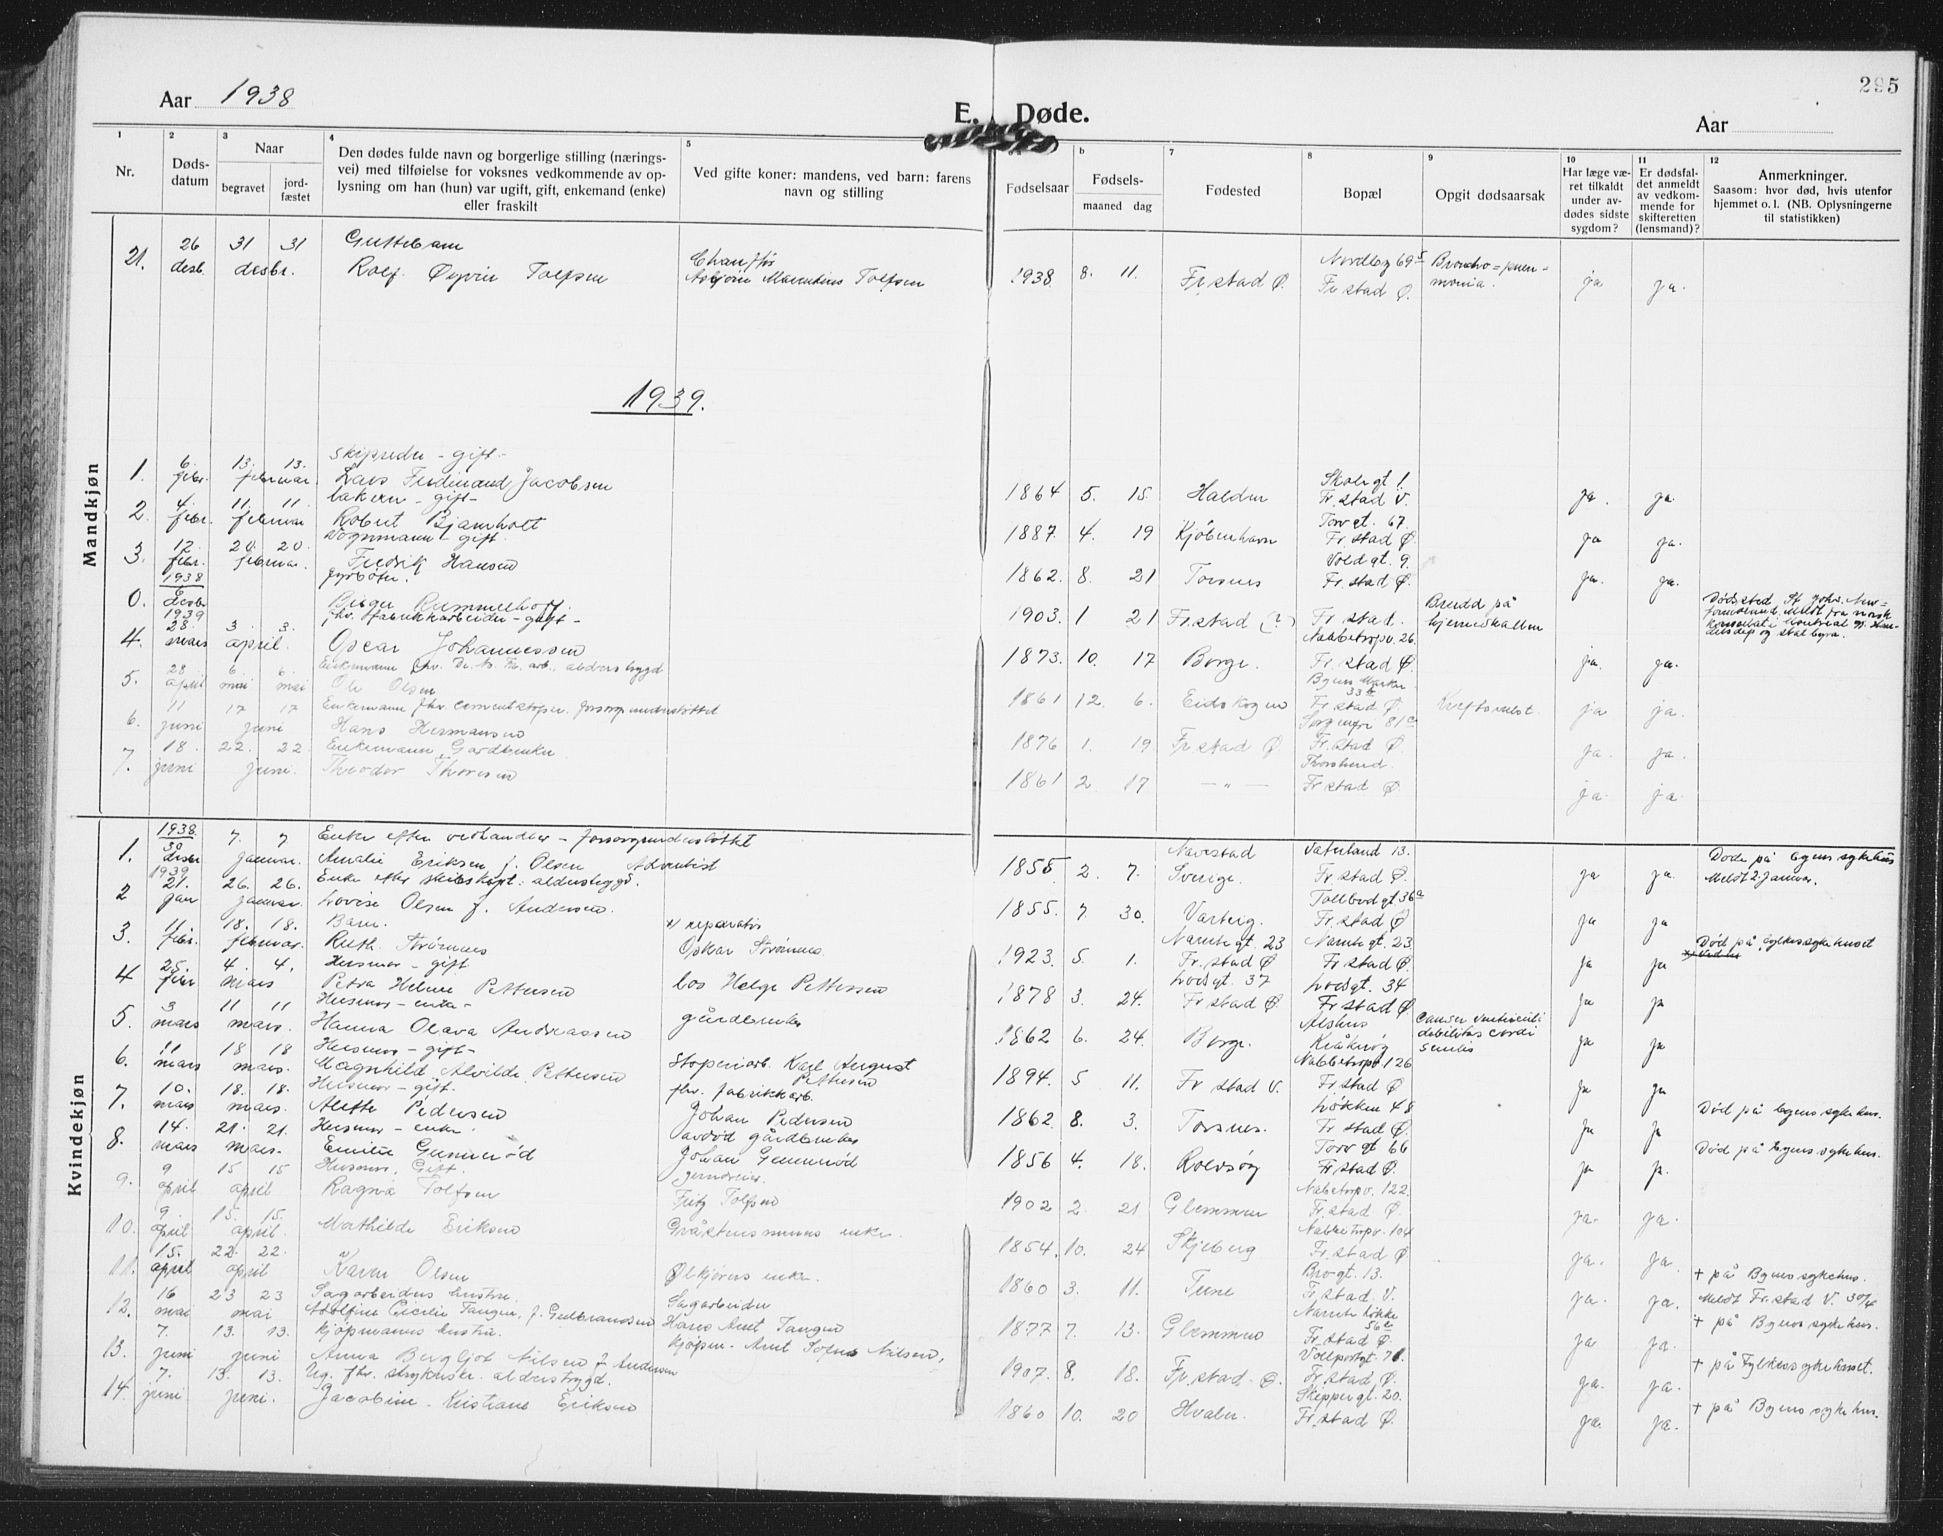 295
Aar 1938
E. Døde.
Aar
1 2 3 4 5 6 7 8 9 10 11 12
Nr.
Døds-
datum
Naar
begravet
jord-
fæstet
Den dødes fulde navn og borgerlige stilling (nærings-
vei) med tilføielse for voksnes vedkommende av op-
lysning om han (hun) var ugift, gift, enkemand (enke)
eller fraskilt
Ved gifte koner: mandens, ved barn: farens
navn og stilling
Fødselsaar
b
Fødsels-
maaned dag
Fødested
Bopæl
Opgit dødsaarsak
Har læge væ-
ret tilkaldt
under av-
dødes sidste
sygdom?
Er dødsfal-
det anmeldt
av vedkom-
mende for
skifteretten
(lensmand)?
Anmerkninger.
Saasom: hvor død, hvis utenfor
hjemmet o. l. (NB. Oplysningerne
til statistikken)
26 31 31 Guttebarn Chauffør Nordbg 69 Broncho=pneu-
21. desb. desbr. Rolf Øyvin Tolfsen Asbjørn Marentius Tolfsen 1938 8. 11. Fr.stad Ø. Fr.stad Ø. monia. ja ja.
1939.
Mandkjøn
6. 13. 13. Skipsreder - gift - Skolegt 1.
1. febr. februar Lars Ferdinand Jacobsen 1864 5. 15 Halden Fr.stad V. ja. ja.
4. 11. 11. baker - gift - Torvgt. 67.
2. febr. februar Robert Bjarnholt 1887. 4. 19 Kjøbenhavn Fr.stad Ø. ja ja.
12. 20. 20. Vognmann gift. Voldgt. 9.
3. febr. februar. Fredrik Hansen 1862. 8. 21 Torsnes Fr.stad Ø. ja. ja.
1938 6 fyrbøter. Brudd på Dødssted St Johs. New=
0. desbr Birger Rummelhoff. 1903. 1 21 Fr.stad (?) Fr.stad. hjerneskallen foundland. Meldt fra norsk
konsulat i Montreal gj. Han-
delsdep og stat. byrå.
1939 28. 3. 3. fhv. fabrikkarbeider - gift - Nabbetorpv. 26.
4. mars april. Oscar Johannessen 1873. 10. 17 Borge. Fr.stad Ø. ja. ja.
23 6. 6. Enkemann fhv. De N. Fr. arb. aldersbygd Byens Marker 33
5. april mai mai Ole Olsen 1861 12. 6. Eidskogen Fr.stad Ø. Kreftsvulst. ja ja.
11 17 17 Enkemann fhv. cementstøper. forsorgsunderstøttet Sorgenfri 81c
6. juni juni Hans Hermansen 1876 1. 19 Fr.stad Ø Fr.stad Ø. ja. ja.
18. 22. 22 Enkemann, Gardbruker
7. juni juni. Theodor Thoresen 1861 2 17 — " — Fr.stad Ø. ja. ja.
Kvindekjøn
1938 30 7. 7 Enke efter vedhandler - forsorgsunderstøttet Navestad Vaterland 13. Døde på byens sykehus
1. desbr januar. Amalie Eriksen f. Olsen Adventist 1855 2. 7. Sverige. Fr.stad Ø. ja ja. Meldt 2. januar.
1939 21. 26. 26. Enke efter skibskapt. aldersbygd. Tollbodgt 36a
2 jan januar. Lovise Olsen f. Andersen. 1855. 7. 30. Varteig. Fr.stad Ø ja ja
11 18. 18. Barn. x) reparatør Narntegt. 23 Narntegt. 23 Død på fylkessykehuset
3. febr. februar. Ruth Strømnes Oskar Strømnes 1923. 5. 1. Fr.stad Ø Fr.stad Ø. ja ja
25. 4. 4. Husmor - gift Lodsgt. 37 Lodsgt. 34
4 febr mars Petra Helene Pettersen Los Helge Pettersen 1878 3. 24. Fr.stad Ø. Fr.stad Ø ja ja
3 11 11 Husmor - enke - Alshus Cancer ventriculi
5. mars mars. Hanna Olava Andreassen gårdbruker 1862 6. 24. Borge. Kråkerøy debilitas cordi senilis ja ja
11 18 18 Husmor - gift - Nabbetorpv 126
6. mars mars. Magnhild Alvilde Pettersen Støperiarb. Karl August Pettersen 1894. 5 11. Fr.stad V. Fr.stad Ø ja ja
10. 18. 18. Husmor - gift. fhv. fabrikkarb. Løkken 48
7. mars mars. Alette Pedersen Johan Pedersen 1862. 8. 3. Torsnes. Fr.stad Ø. ja ja Død på byens sykehus.
14. 21. 21. Husmor - enke. avdød gårdbruker Torvgt 66
8. mars mars. Emilie Gunnerød Johan Gunnerød 1856 4. 18. Rolvsøy Fr.stad Ø. ja ja. Død på byens sykehus.
9 15 15 Husmor, Gift. Jerndreier. Nabetorpv. 122.
9. april april Ragna Tolfsen Fritz Tolfsen 1902 2. 21 Glemmen Fr.stad Ø. ja. ja.
9. 15. 15. Nabbetorpv. 104
10. april april. Mathilde Eriksen Gråstensminers enke. 1854. 10. 24 Skjeberg Fr.stad Ø ja. ja.
15. 22. 22. Brogt. 13. + på Byens sykehus.
11. april april Karen Olsen Ølkjørers enke. 1860 3. 11. Tune Fr.stad V. ja. ja. Meldt Fr.stad V. 30/4
16 23 23 Sagarbeiders hustru. Sagarbeider Narnte løkke 56
12. mai mai Adolfine Cecilie Tangen, f. Gulbrandsen Hans Arnt Tangen 1877 7. 13. Glemmen Fr.stad Ø ja ja. + på Byens sykehus.
7. 13. 13. kjøpmanns hustru. Vollportgt. 71.
13. juni juni Anna Bergljot Nilsen f. Andersen kjøpm. Arnt Nilsen, 1907. 8. 18. Fr.stad Ø. Fr.stad Ø. ja. ja. + på Fylkessykehuset.
7. 13. 13. Ug. fhv. strykerske. aldersbygd. Skippergt. 20.
14. juni juni. Jacobine Kristiane Eriksen 1860 10. 20 Hvaler. Fr.stad Ø ja. ja. + på Byens sykehus.